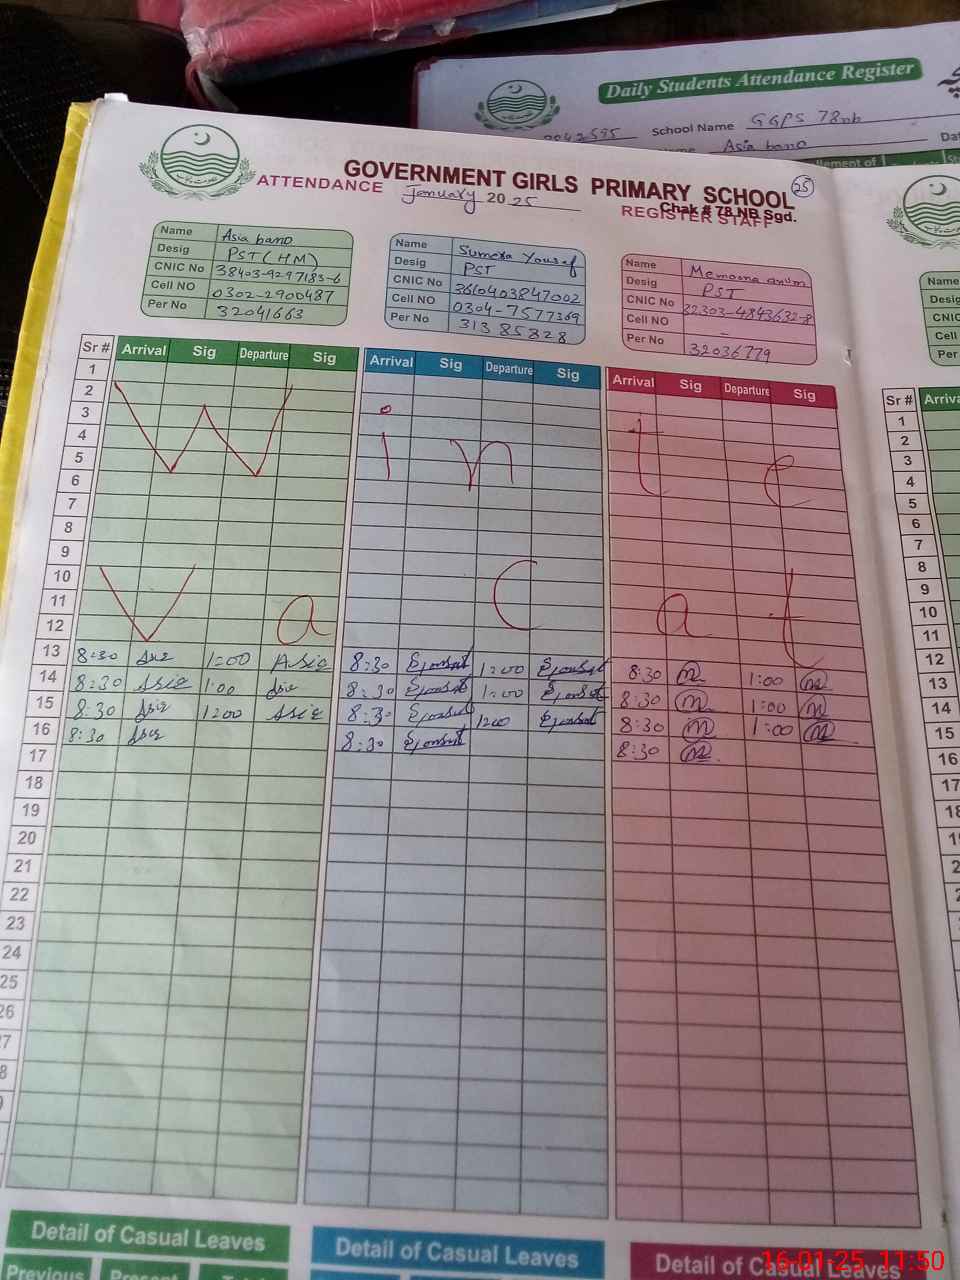 Daily Students Attendance Register
School Name GGPS 78nb
Asia bano
GOVERNMENT GIRLS PRIMARY SCHOOL
25
Chak # 78 NB Sgd.
ATTENDANCE January 20 25 REGISTER STAFF
Name Asia bano
Desig PST (HM)
CNIC No 38403-4297183-6
Cell NO 0302-2900487
Per No 32041663
Name Sumera Yousaf
Desig PST
CNIC No 3610403847002
Cell NO 0304-7577369
Per No 31385828
Name Memoona anum
Desig PST
CNIC No 32303-4843632-8
Cell NO -
Per No 32036779
Sr # Arrival Sig Departure Sig Arrival Sig Departure Sig Arrival Sig Departure Sig
1
2
3
4
5
6
Winte
7
8
9
10
11
12
Vacat
13 8:30 Asia 1:00 Asia 8:30 1:00 8:30 m 1:00 m
14 8:30 Asia 1:00 Asia 8:30 1:00 8:30 m 1:00 m
15 8:30 Asia 1:00 Asia 8:30 1:00 8:30 m 1:00 m
16 8:30 Asia 8:30 8:30 m
17
18
19
20
21
22
23
24
25
26
Detail of Casual Leaves
Detail of Casual Leaves
Detail of Casual Leaves
Previous Present
Name
Desig
CNIC
Cell
Per
Sr # Arriva
1
2
3
4
5
6
7
8
9
10
11
12
13
14
15
16
17
16-01-25 11:50